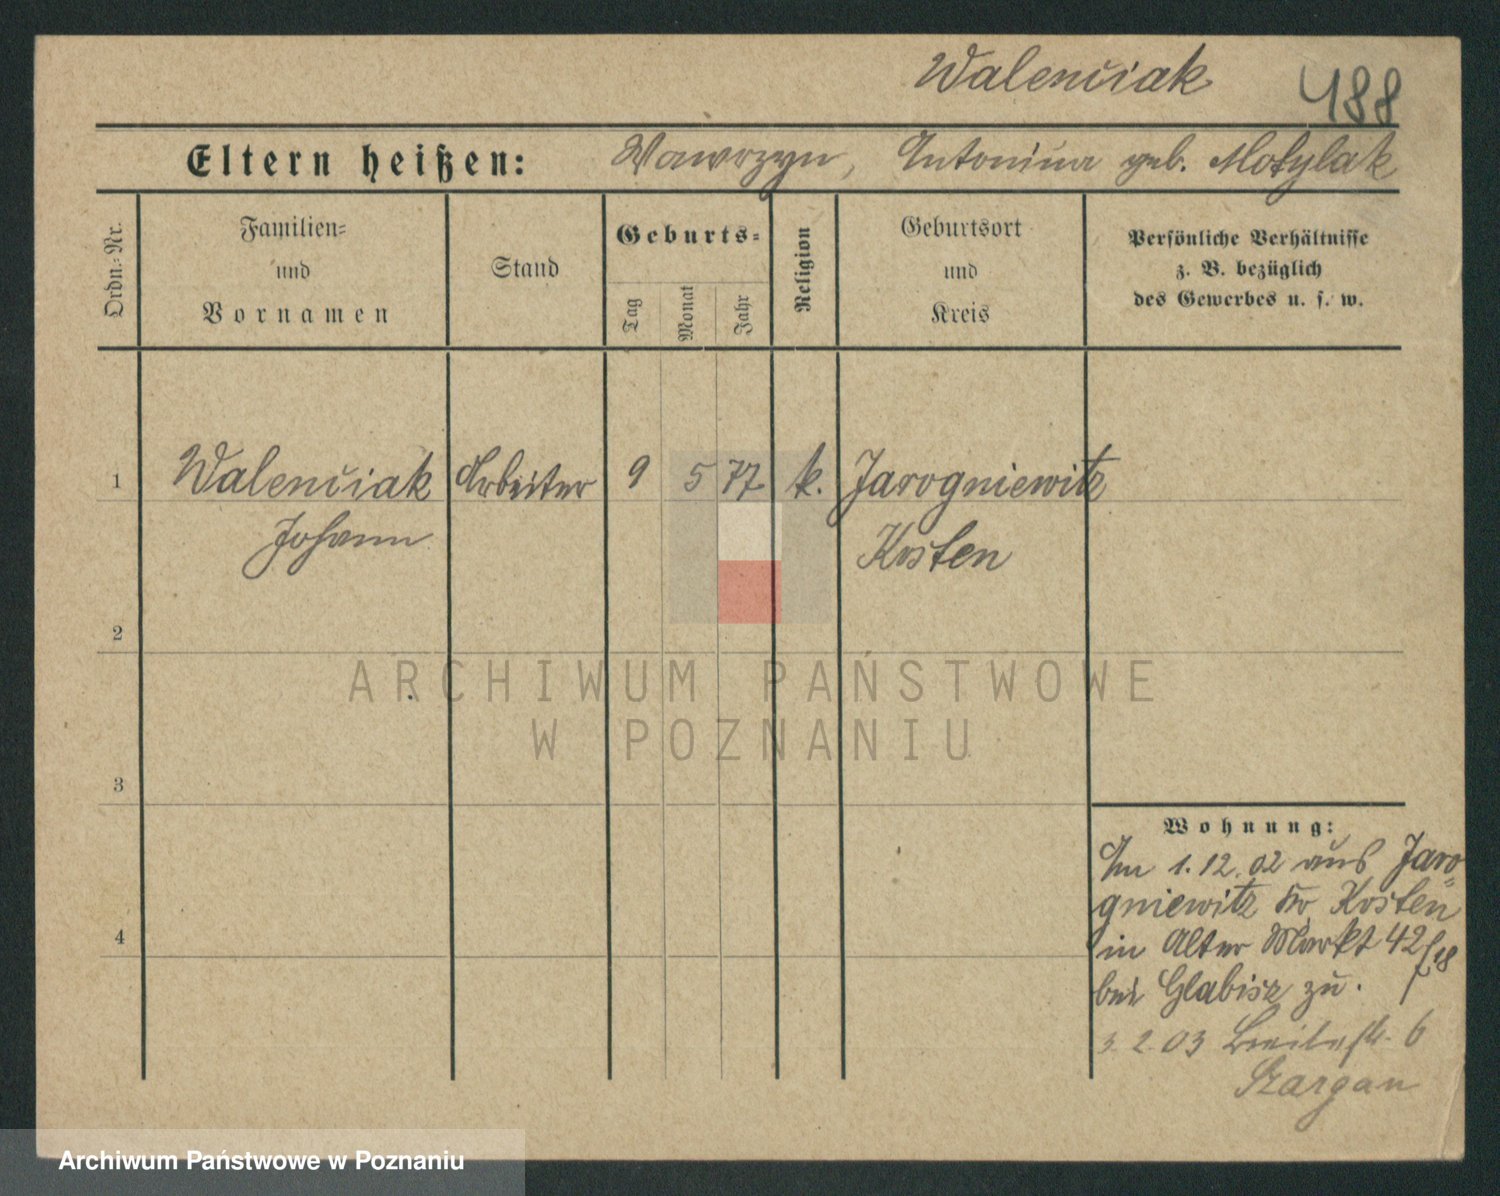 Walenciak 488
Eltern heißen: Wawrzyn, Antonina geb. Motylak
Ordn.-Nr.
Familien-
und
Vornamen
Stand
Geburts-
Tag
Monat
Jahr
Religion
Geburtsort
und
Kreis
Persönliche Verhältnisse
z. B. bezüglich
des Gewerbes u. s. w.
1 Walenciak Arbeiter 9 5 77 k. Jarogniewitz
Johann Kosten
2
3
4
ARCHIWUM PAŃSTWOWE
W POZNANIU
Wohnung:
Am 1.12.02 aus Jaro-
gniewitz Kr Kosten
in Alter Markt 42/18
bei Glabisz zu.
3.2.03 Breitestr. 6
Szargan
Archiwum Państwowe w Poznaniu